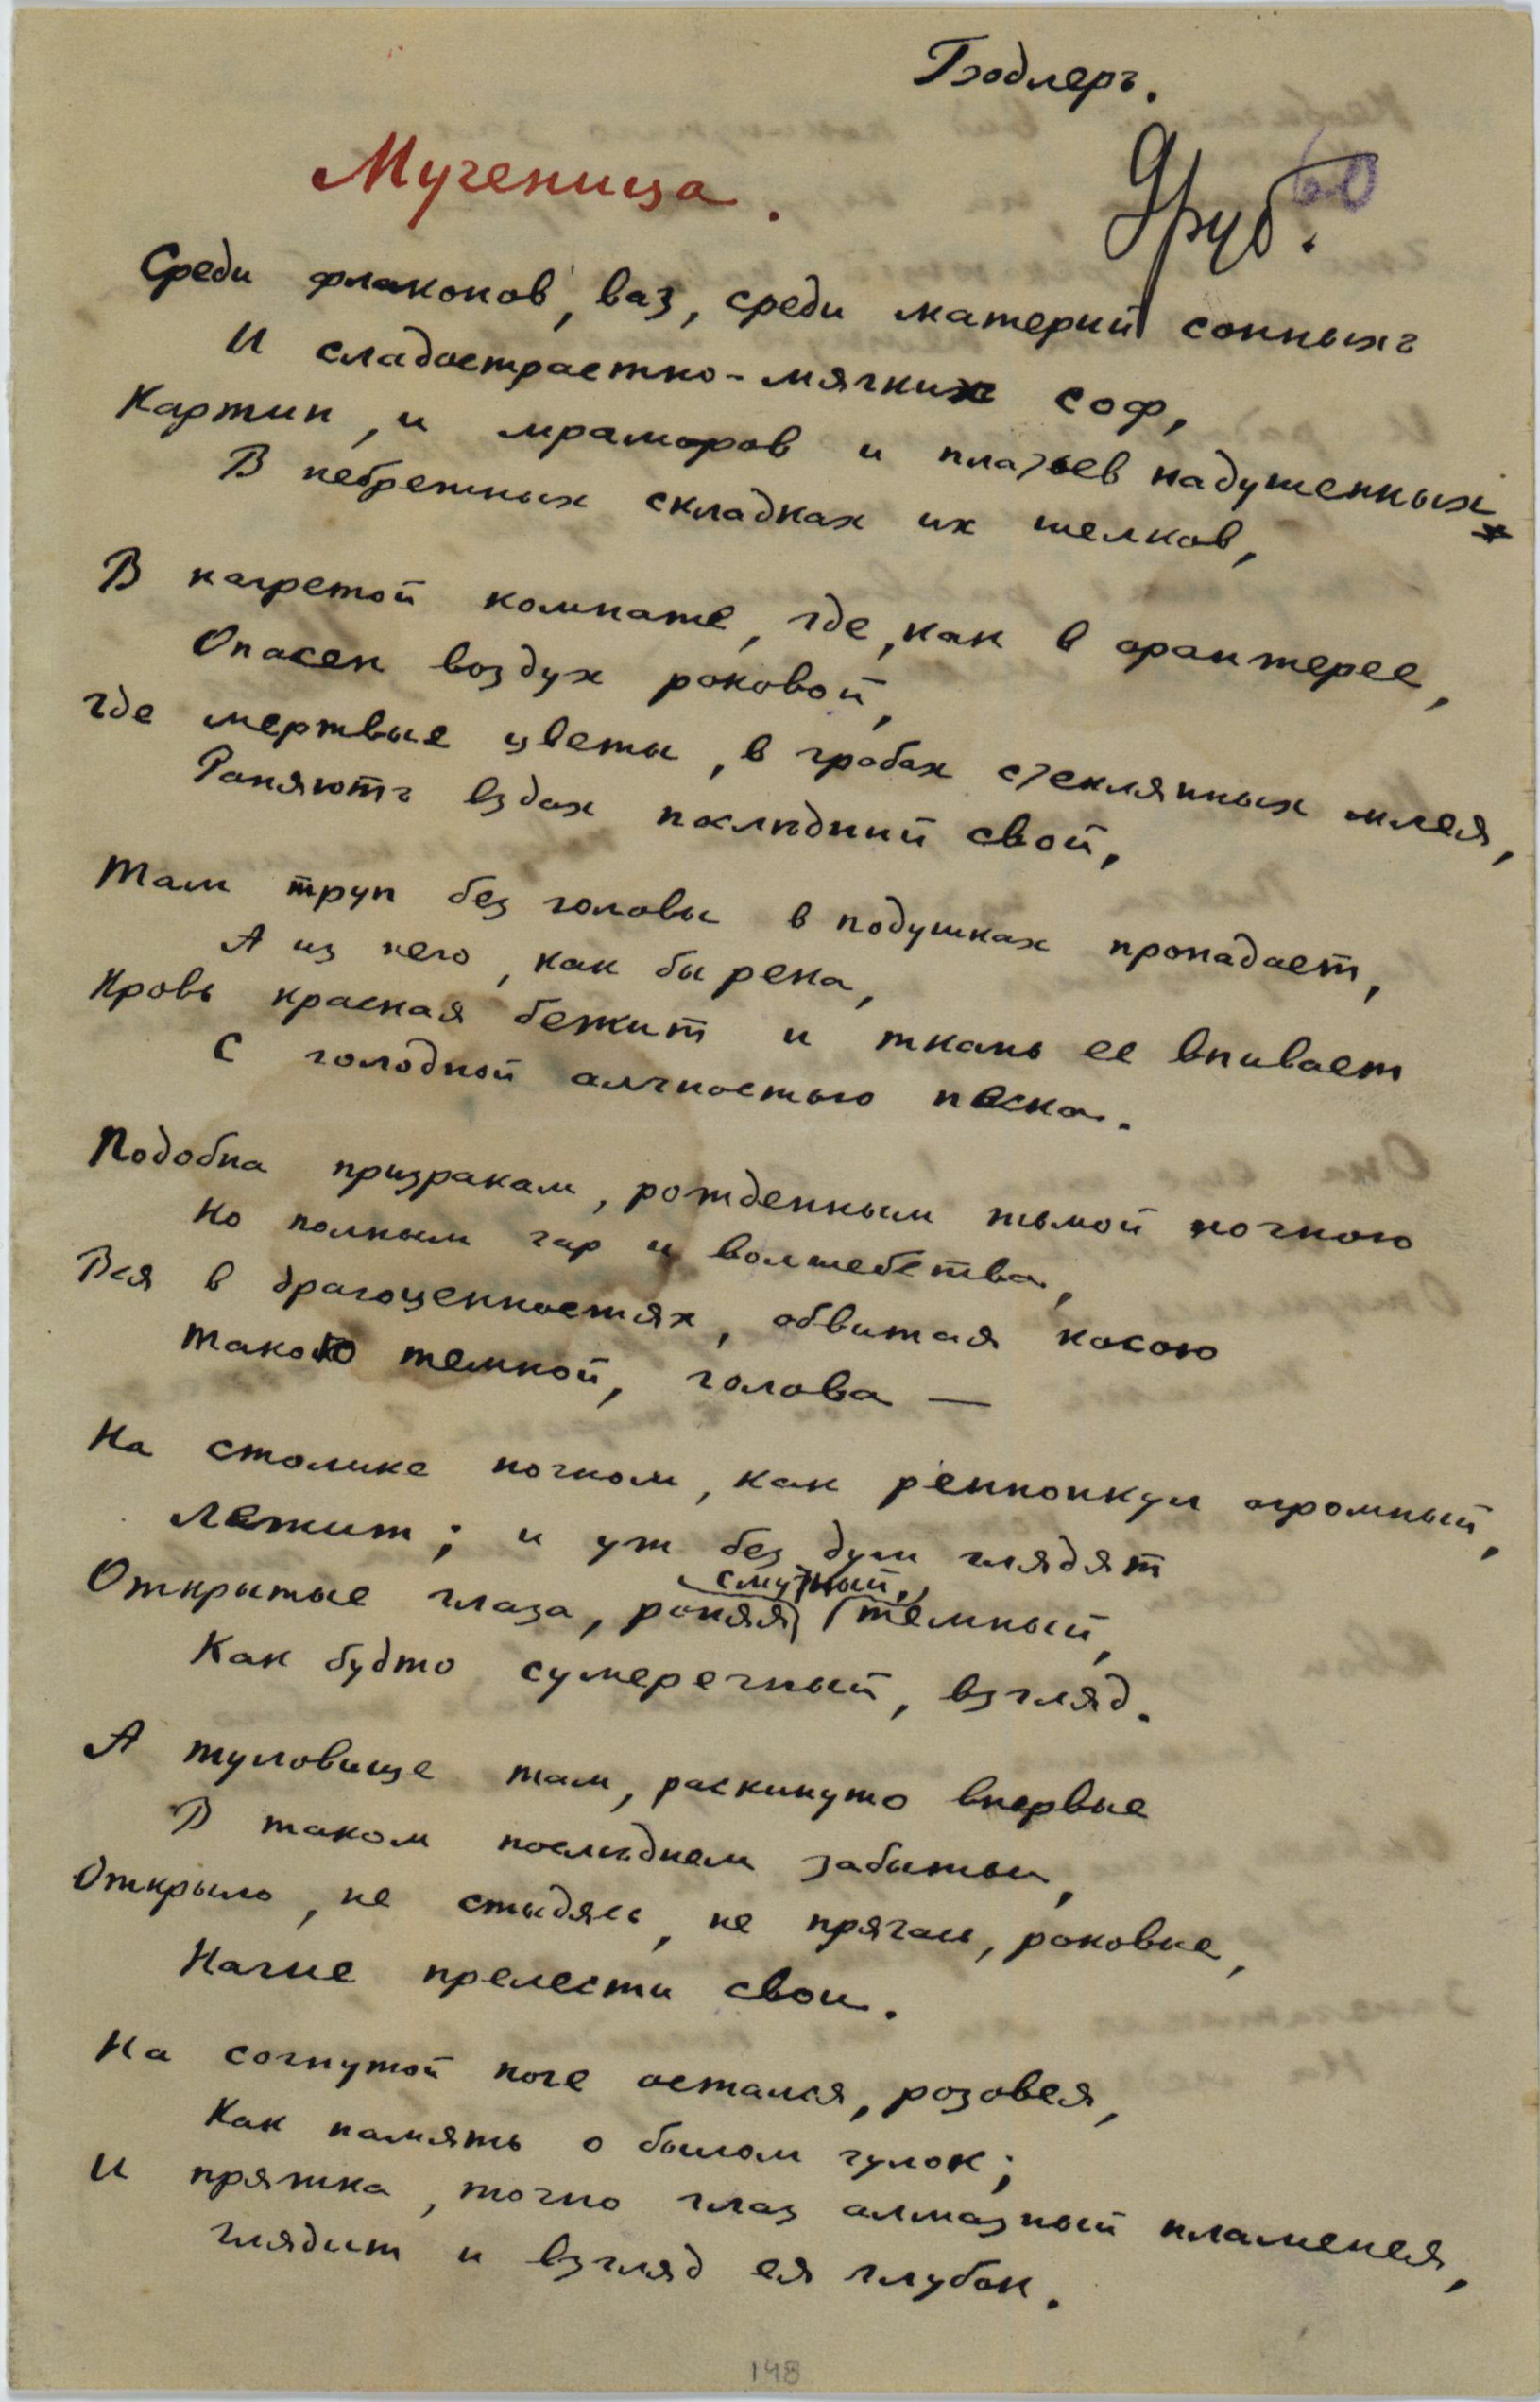 Бодлеръ.
60
Мученица.
Среди флаконов, ваз, среди материй сонныхъ
И сладострастно-мягких соф,
Картин, и мраморов и платьев надушенных
В небрежных складках их шелков,
В нагретой комнате, где, как в оранжерее,
Опасен воздух роковой,
Где мертвые цветы, в гробах стеклянных млея,
Роняютъ вздох послѣдний свой,
Там труп без головы в подушках пропадает,
А из него, как бы река,
Кровь красная бежит и ткань ее впивает
С голодной алчностью песка.
Подобна призракам, рожденным тьмой ночною
Но полным чар и волшебства,
Вся в драгоценностях, обвитая косою
Такою темной, голова —
На столике ночном, как ренонкул огромный,
Лежит; и уж без дум глядят
смутный,
Открытые глаза, роняя темный,
Как будто сумеречный, взгляд.
А туловище там, раскинуто впервые
В таком послѣднем забытьи,
Открыло, не стыдясь, не прячась, роковые,
Нагие прелести свои.
На согнутой ноге остался, розовея,
Как память о былом чулок;
И пряжка, точно глаз алмазный пламенея,
Глядит и взгляд ея глубок.
148